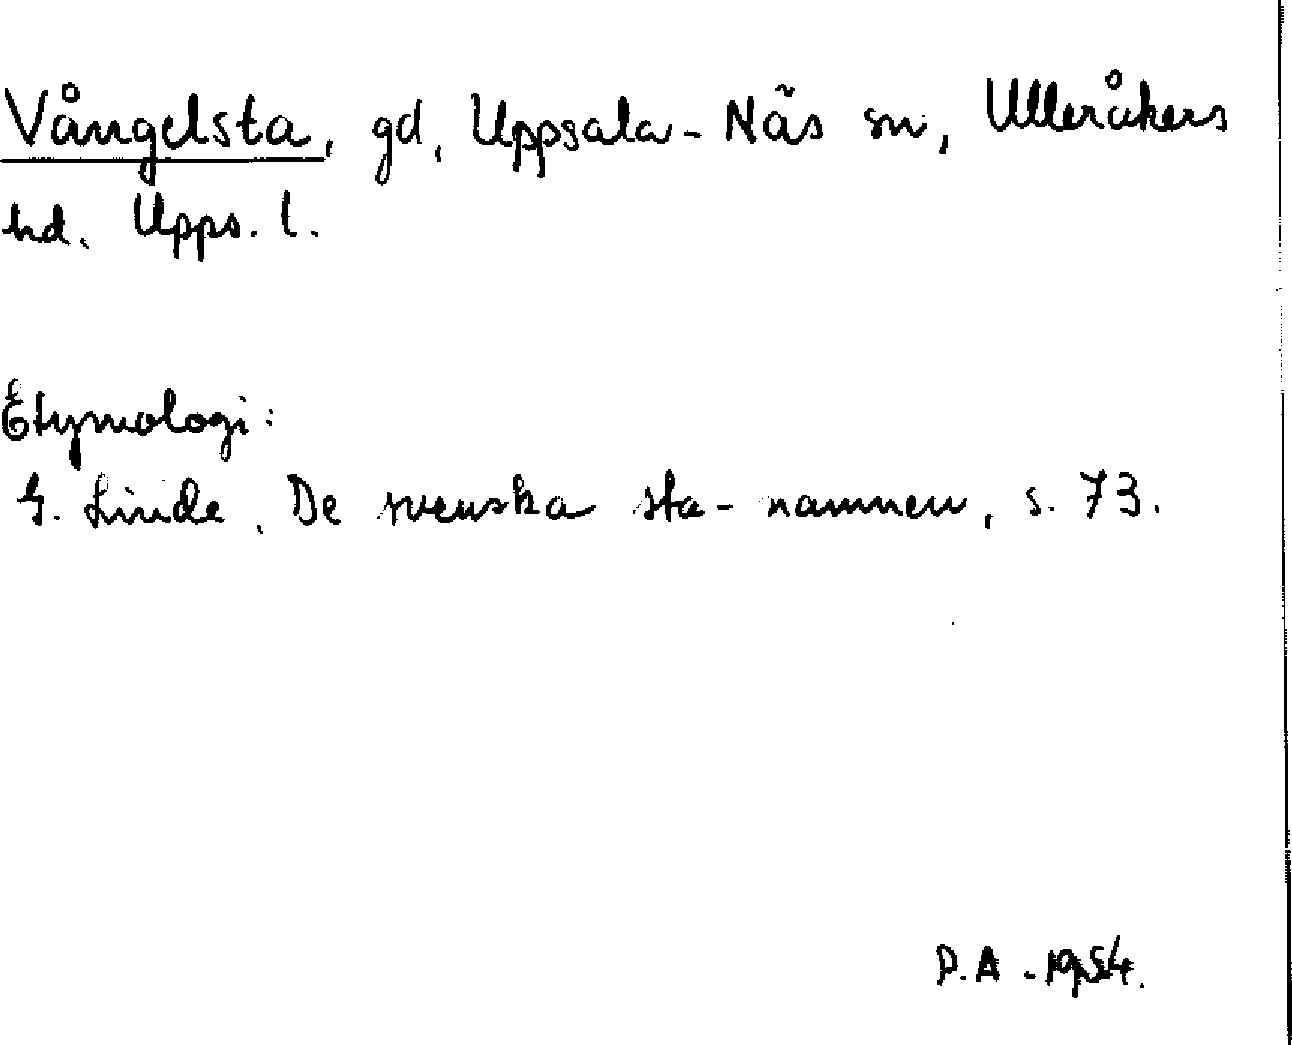 Vångelsta, gd, Uppsala-Näs sn, Ulleråkers
hd. Upps. l.
Etymologi:
G. Linde, De svenska sta-namnen, s. 73.
P.A. 1954.